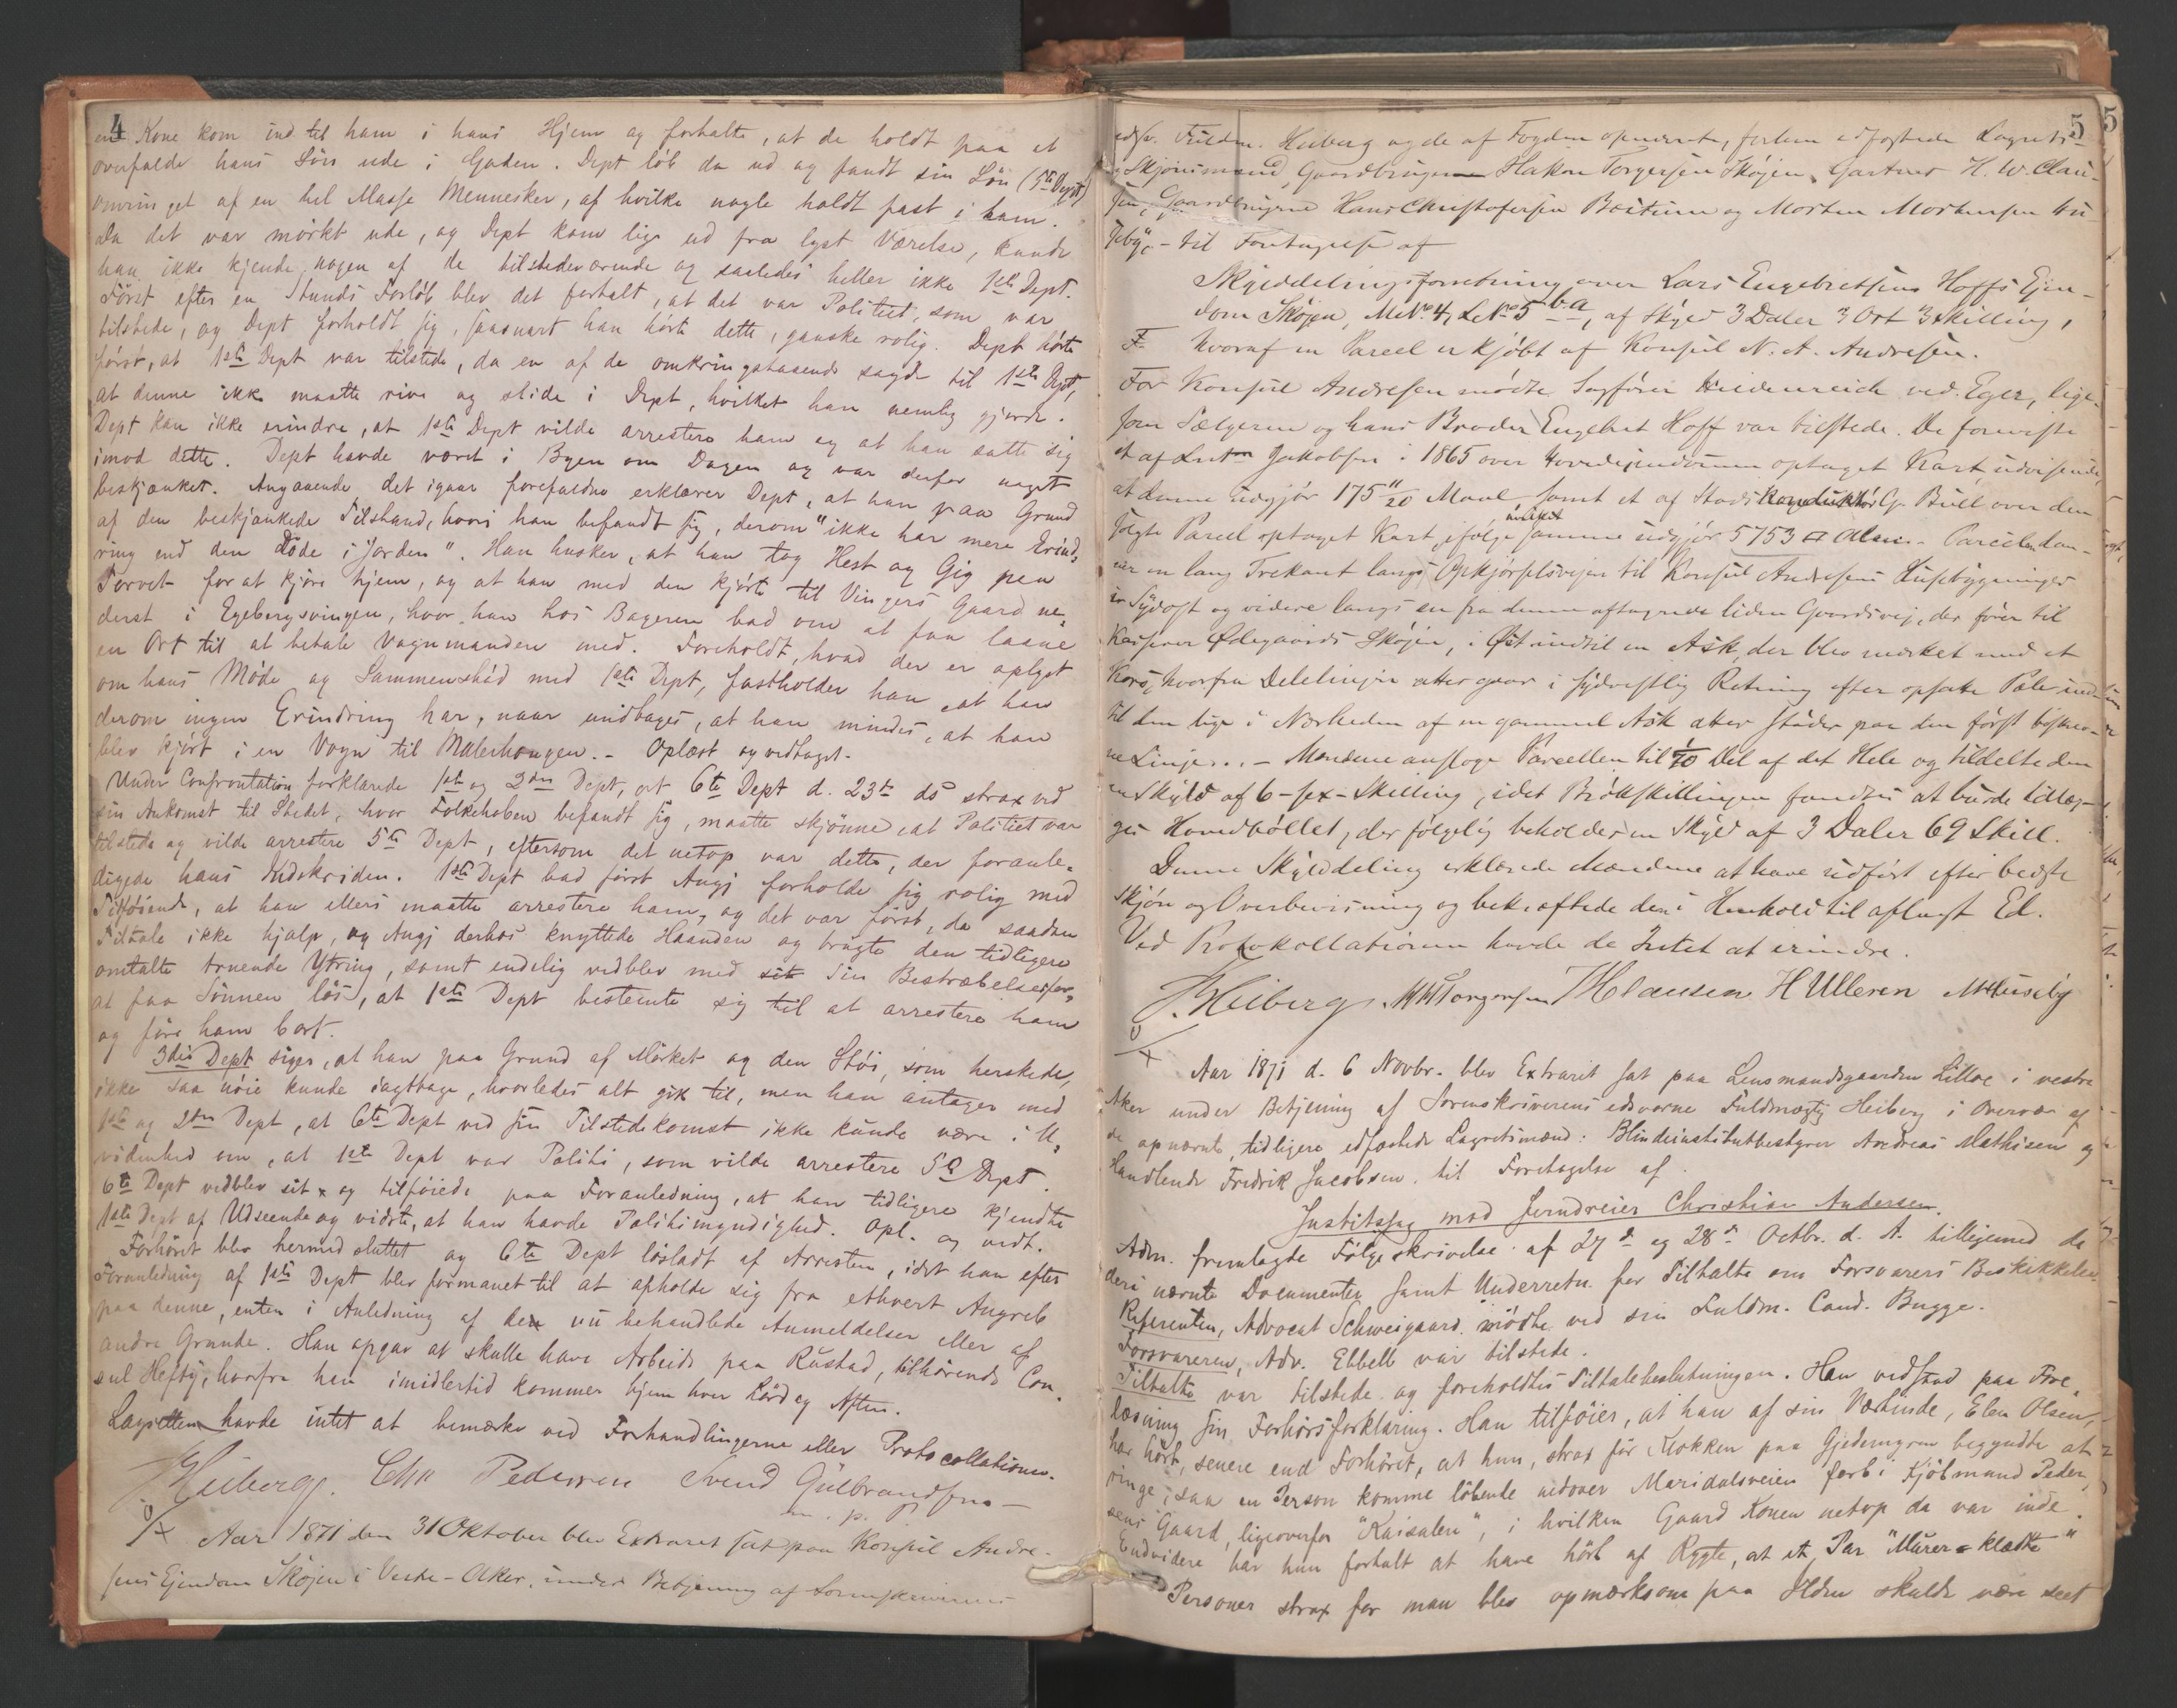 4
en Kone kom ind til ham i hans Hjem og fortalte, at de holdt paa at
overfalde hans Sön ude i Gaden. Dept löb da ud og fandt sin Sön (5te Dept)
omringet af en hel Masse Mennesker, af hvilke nogle holdt fast i ham.
Da det var mörkt ude, og Dept kom lige ud fra lyst Værelse, kunde
han ikke kjende nogen af de tilstedeværende og saaledes heller ikke 1ste Dept.
Först efter en Stunds Forlöb blev det fortalt, at det var Politiet, som var
tilstede, og Dept forholdt sig, saasnart han hörte dette, ganske rolig. Dept hörte
först, at 1ste Dept var tilstede, da en af de omkringstaaende sagde til 1ste Dept,
at denne ikke maatte rive og slide i Dept, hvilket han nemlig gjorde.
Dept kan ikke erindre, at 1ste Dept vilde arrestere ham og at han satte sig
imod dette. Dept havde været i Byen om Dagen og var derfor noget
beskjænket. Angaaende det igaar forefaldne erklærer Dept, at han paa Grund
af den beskjænkede Tilstand, hvori han befandt sig, derom "ikke har mere Erind-
ring end den döde i Jorden". Han husker, at han tog Hest og Gig paa
Torvet for at kjöre hjem, og at han med den kjörte til Vingers Gaard ne-
derst i Egebergsvingen, hvor han hos Bageren bad om at faa laane
en Ort til at betale Vognmanden med. Foreholdt, hvad der er oplyst
om hans Möde og Sammenstöd med 1ste Dept, fastholder han, at han
derom ingen Erindring har, naar undtages, at han mindes, at han
blev kjört i en Vogn til Malerhaugen. - Oplæst og vedtaget.
Under Confrontation forklarede 1ste og 2den Dept, at 6te Dept d. 23de ds strax ved
sin Ankomst til Stedet, hvor Folkehoben befandt sig, maatte skjönne, at Politiet var
tilstede og vilde arrestere 5te Dept, eftersom det netop var dette, der foranle-
digede hans Indskriden. 1ste Dept bad först Angj forholde sig rolig med
Tilföiende, at han ellers maatte arrestere ham, og det var först, da saadan
Tiltale ikke hjalp, og Angj derhos knyttede Haanden og brugte den tidligere
omtalte truende Ytring, samt endelig vedblev med sit sin Bestræbelse for
at faa Sönnen lös, at 1ste Dept bestemte sig til at arrestere ham
og före ham bort.
3die Dept siger, at han paa Grund af Mörket og den Stöi, som herskede,
ikke saa nöie kunde iagttage, hvorledes alt gik til, men han antager med
1ste og 2den Dept, at 6te Dept ved sin Tilstedekomst ikke kunde være i U-
videnhed om, at 1ste Dept var Politi, som vilde arrestere 5te Dept.
6te Dept vedblev sit og tilföiede paa Foranledning, at han tidligere kjendte
1ste Dept af Udseende og vidste, at han havde Politimyndighed. Opl. og vedt.
Forhöret blev hermed sluttet og 6te Dept löslad af Arresten, idet han efter
Foranledning af 1ste Dept blev formanet til at afholde sig fra ethvert Angreb
paa denne, enten i Anledning af den nu behandlede Anmeldelse eller af
andre Grunde. Han opgav at skulle have Arbeide paa Rustad, tilhörende Con-
sul Heftÿ, hvorfra han imidlertid kommer hjem hver Lördag Aften.
Lagretten havde intet at bemærke ved Forhandlingerne eller Protocollationen.
JHeiberg. Chr Pedersen Svend Gulbrandsen
m. p. P.
Aar 1871 den 31 Oktober blev Extraret sat paa Konsul Andre-
sens Ejendom Skøjen i Vestre-Aker, under Betjening af Sorenskriverens
5
edsv. Fuldm. Heiberg og de af Fogden opnævnte, forhen edfæstede Lagrets-
Skjønsmænd, Gaardbrugerne Hakon Torgersen Skøjen, Gartner H. W. Clau-
sen, Gaardbrugerne Hans Christofersen Bestum og Morten Mortensen Hu-
seby, - til Foretagelse af
Skylddelingsforretning over Lars Engebretsens Hoffs Ejen-
dom Skøjen, M.No 4, L.No 5 b.a, af Skyld 3 Daler 3 Ort 3 Skilling,
hvoraf en Parcel er kjøbt af Konsul N. A. Andresen.
For Konsul Andresen mødte Sagfører Heidenreich ved Eger, lige-
som Sælgeren og hans Broder Engebret Hoff var tilstede. De foreviste
et af Lnt Jakobsen i 1865 over Hovedejendommen optaget Kart, udvisende,
at denne udgjør 175 11/20 Maal samt et af Stads Konduktør G. Bull over den
solgte Parcel optaget Kart, ifølge hvilket samme udgjør 5753 □ Alen. - Parcelen dan-
ner en lang Trekant langs Opkjørselsvejen til Konsul Andresens Husebygninger
i Sydost og videre langs en fra denne aftagende liden Gaardsvej, der fører til
Kasserer Ødegaards Skøjen, i Øst indtil en Ask, der blev mærket med et
Kors, hvorfra Delelinjen atter gaar i sydvestlig Retning efter opsatte Pæle ind
til den lige i Nærheden af en gammel Ask atter støder paa den først beskrev-
ne Linje. - Mændene ansloge Parcellen til 1/40 Del af det Hele og tildelte den
en Skyld af 6 - sex - Skilling, idet Brøkskillingen fandtes at burde tillæg-
ges Hovedbøllet, der følgelig beholder en Skyld af 3 Daler 69 Skill.
Denne Skylddeling erklærede Mændene at have udført efter bedste
Skjøn og Overbevisning og bekræftede den i Henhold til aflagt Ed.
Ved Protokollationen havde de Intet at erindre.
JHeiberg. HTorgersen HClausen HUlleren MHuseby
Aar 1871 d. 6 Novbr. blev Extraret sat paa Lensmandsgaarden Lilloe i vestre
Aker under Betjening af Sorenskriverens edsvorne Fuldmægtig Heiberg i Overvær af
de opnævnte, tidligere edfæstede Lagretsmænd: Blindeinstitutbestyrer Andreas Mathisen og
Handlende Fredrik Jacobsen, til Foretagelse af
Justitssag mod Jerndreier Christian Andersen.
Adm. fremlagde Fölgeskrivelse af 27de og 28de Octbr. d. A. tilligemed de
deri nævnte Documenter samt Underretn. for Tiltalte om Forsvarers Beskikkelse.
Referenten, Advocat Schweigaard, mödte ved sin Fuldm. Cand. Bugge.
Forsvareren, Adv. Ebbell var tilstede.
Tiltalte var tilstede og foreholdtes Tiltalebeslutningen. Han vedstod paa Fore-
læsning sin Forhörsforklaring. Han tilföier, at han af sin Værtinde, Elen Olsen,
har hört, senere end Forhöret, at hun, strax för Klokken paa Gjedemyren begyndte at
ringe, saa en Person komme löbende nedover Maridalsveien forbi Kjöbmand Peder-
sens Gaard, ligeoverfor "Kuisalen", i hvilken Gaard Konen netop da var inde.
Endvidere har hun fortalt at have hört af Rygte, at et Par "Murer-klædte"
Personer strax för man blev opmærksom paa Ilden skulde være seet